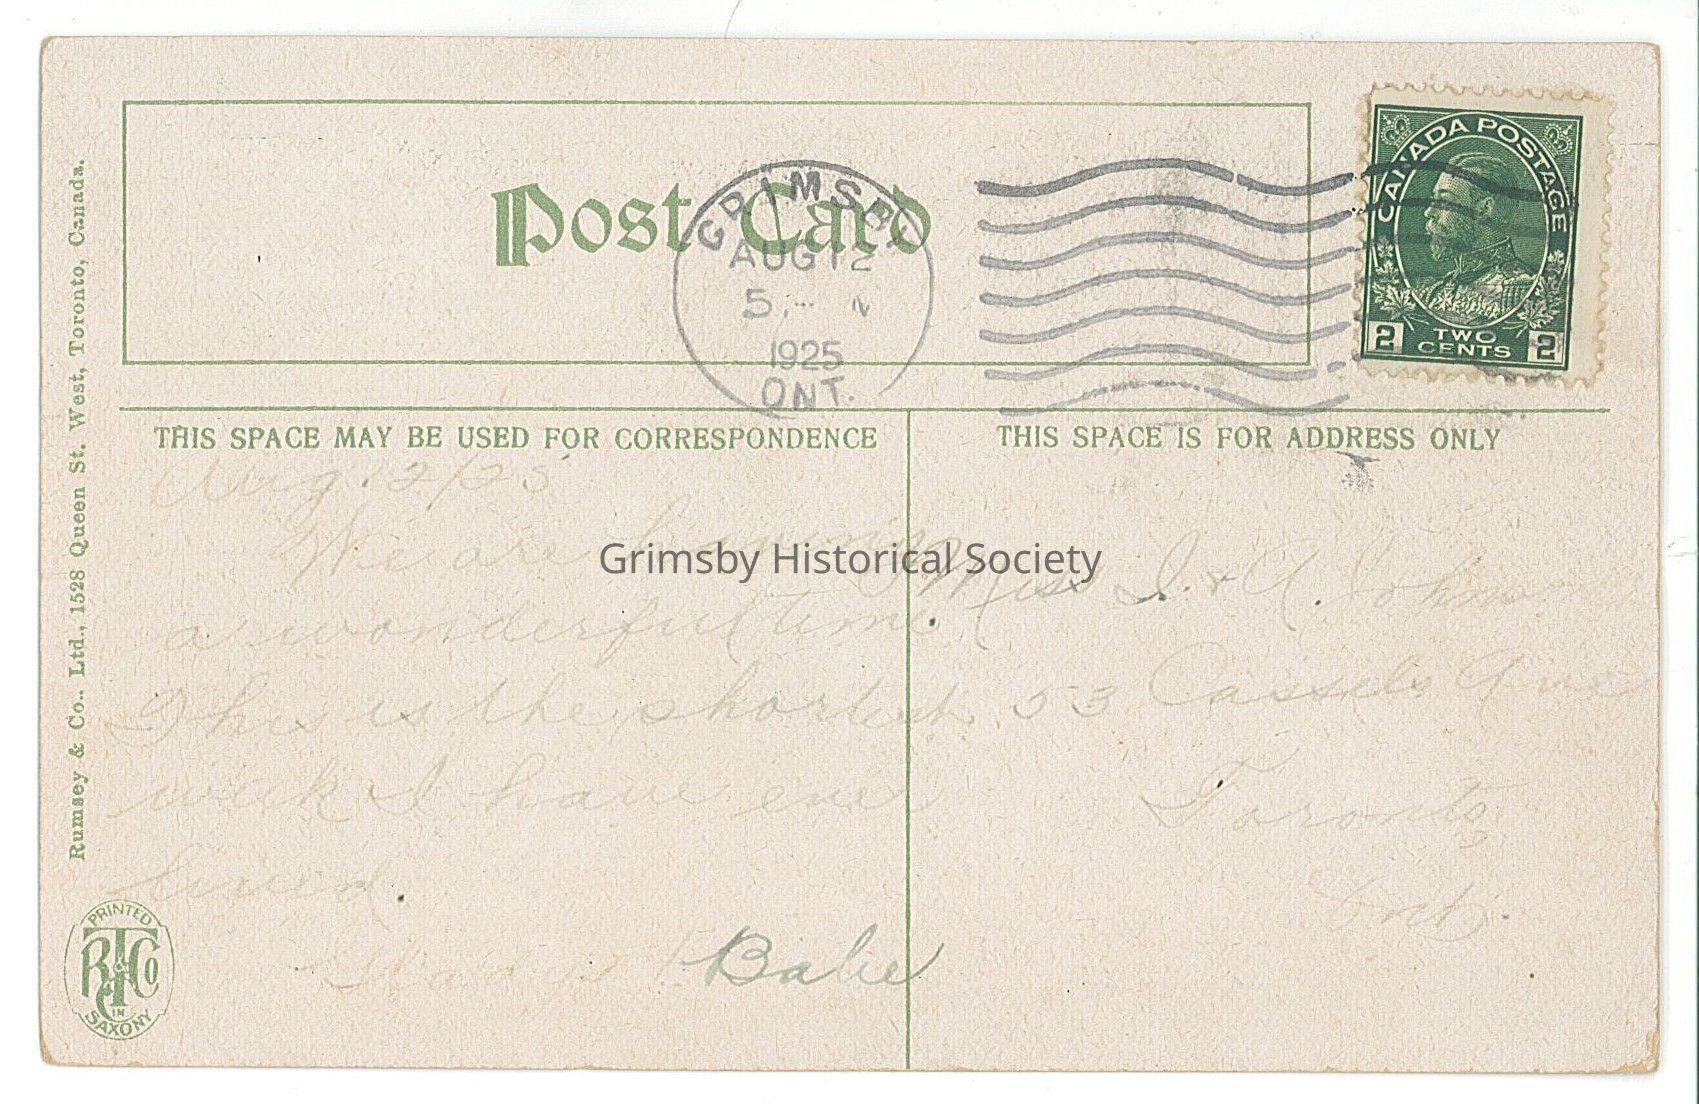 Post Card
GRIMSBY
AUG 12
5
1925
ONT.
CANADA POSTAGE
2 TWO CENTS 2
THIS SPACE MAY BE USED FOR CORRESPONDENCE
THIS SPACE IS FOR ADDRESS ONLY
Rumsey & Co., Ltd., 1528 Queen St. West, Toronto, Canada.
Aug 12/25
We are having
a wonderful time.
This is the shortest
week I have ever
lived.
Babe
Miss I. & A. Johnson
53 Cassels Ave
Toronto,
Ont.
Grimsby Historical Society
PRINTED
R T & Co
IN
SAXONY